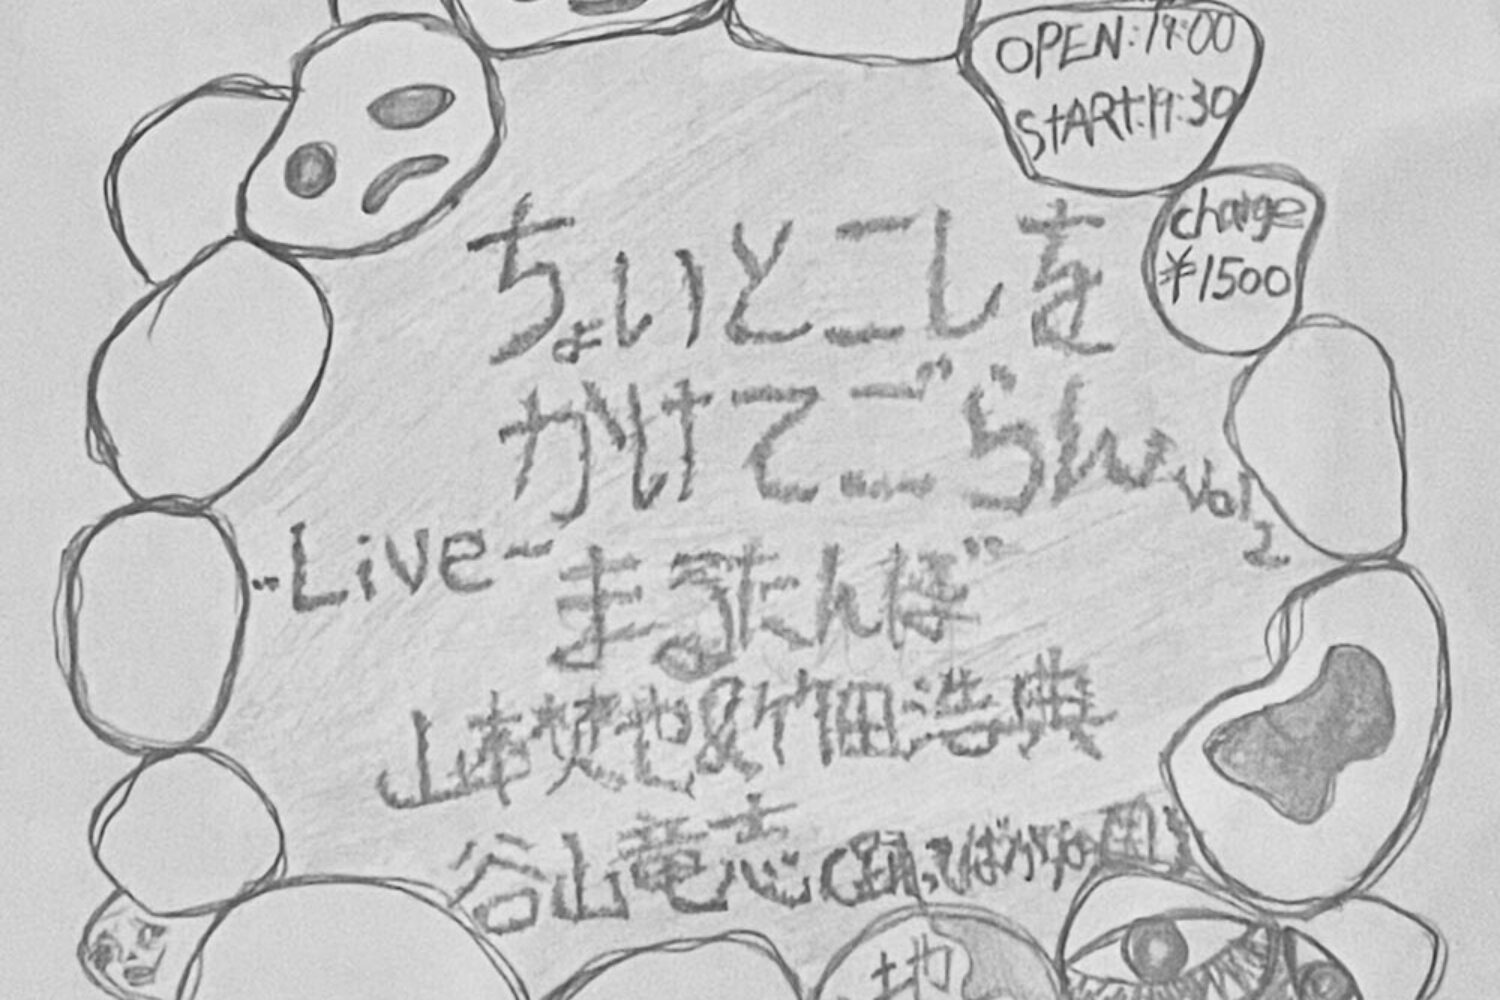 OPEN:19:00
START:19:30
charge
¥1500
ちょいとこしを
かけてごらん vol 2
-Live-
まるたんぼ
山本焚也&竹田浩典
谷山竜志
地